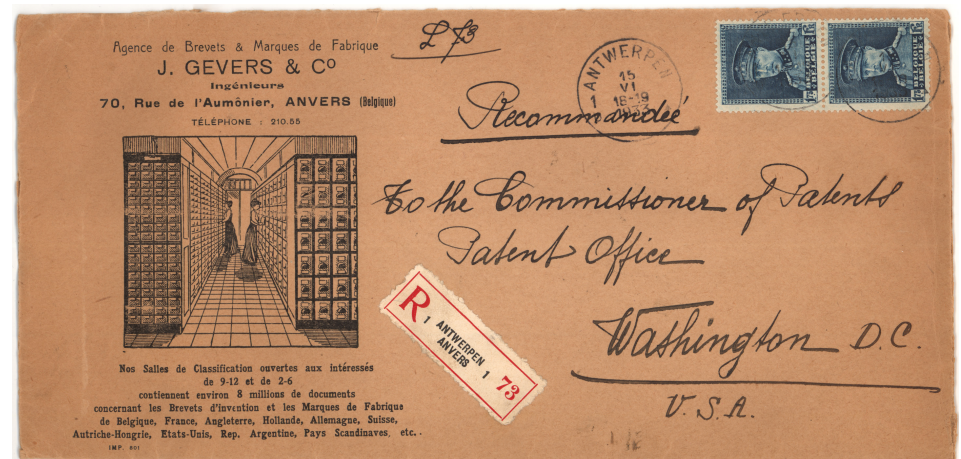 Agence de Brevets & Marques de Fabrique
J. GEVERS & Cº
Ingénieurs
70, Rue de l'Aumônier, ANVERS (Belgique)
TÉLÉPHONE : 210.55
Nos Salles de Classification ouvertes aux intéressés
de 9-12 et de 2-6
contiennent environ 8 millions de documents
concernant les Brevets d'invention et les Marques de Fabrique
de Belgique, France, Angleterre, Hollande, Allemagne, Suisse,
Autriche-Hongrie, Etats-Unis, Rep. Argentine, Pays Scandinaves, etc..
IMP. 801
73
ANTWERPEN
15
VI
18-19
1933
1
BELGIQUE
BELGIË
BELGIQUE
BELGIË
Recommandée
To the Commissioner of Patents
Patent Office
Washington D.C.
U.S.A.
R
1 ANTWERPEN 1
ANVERS
73